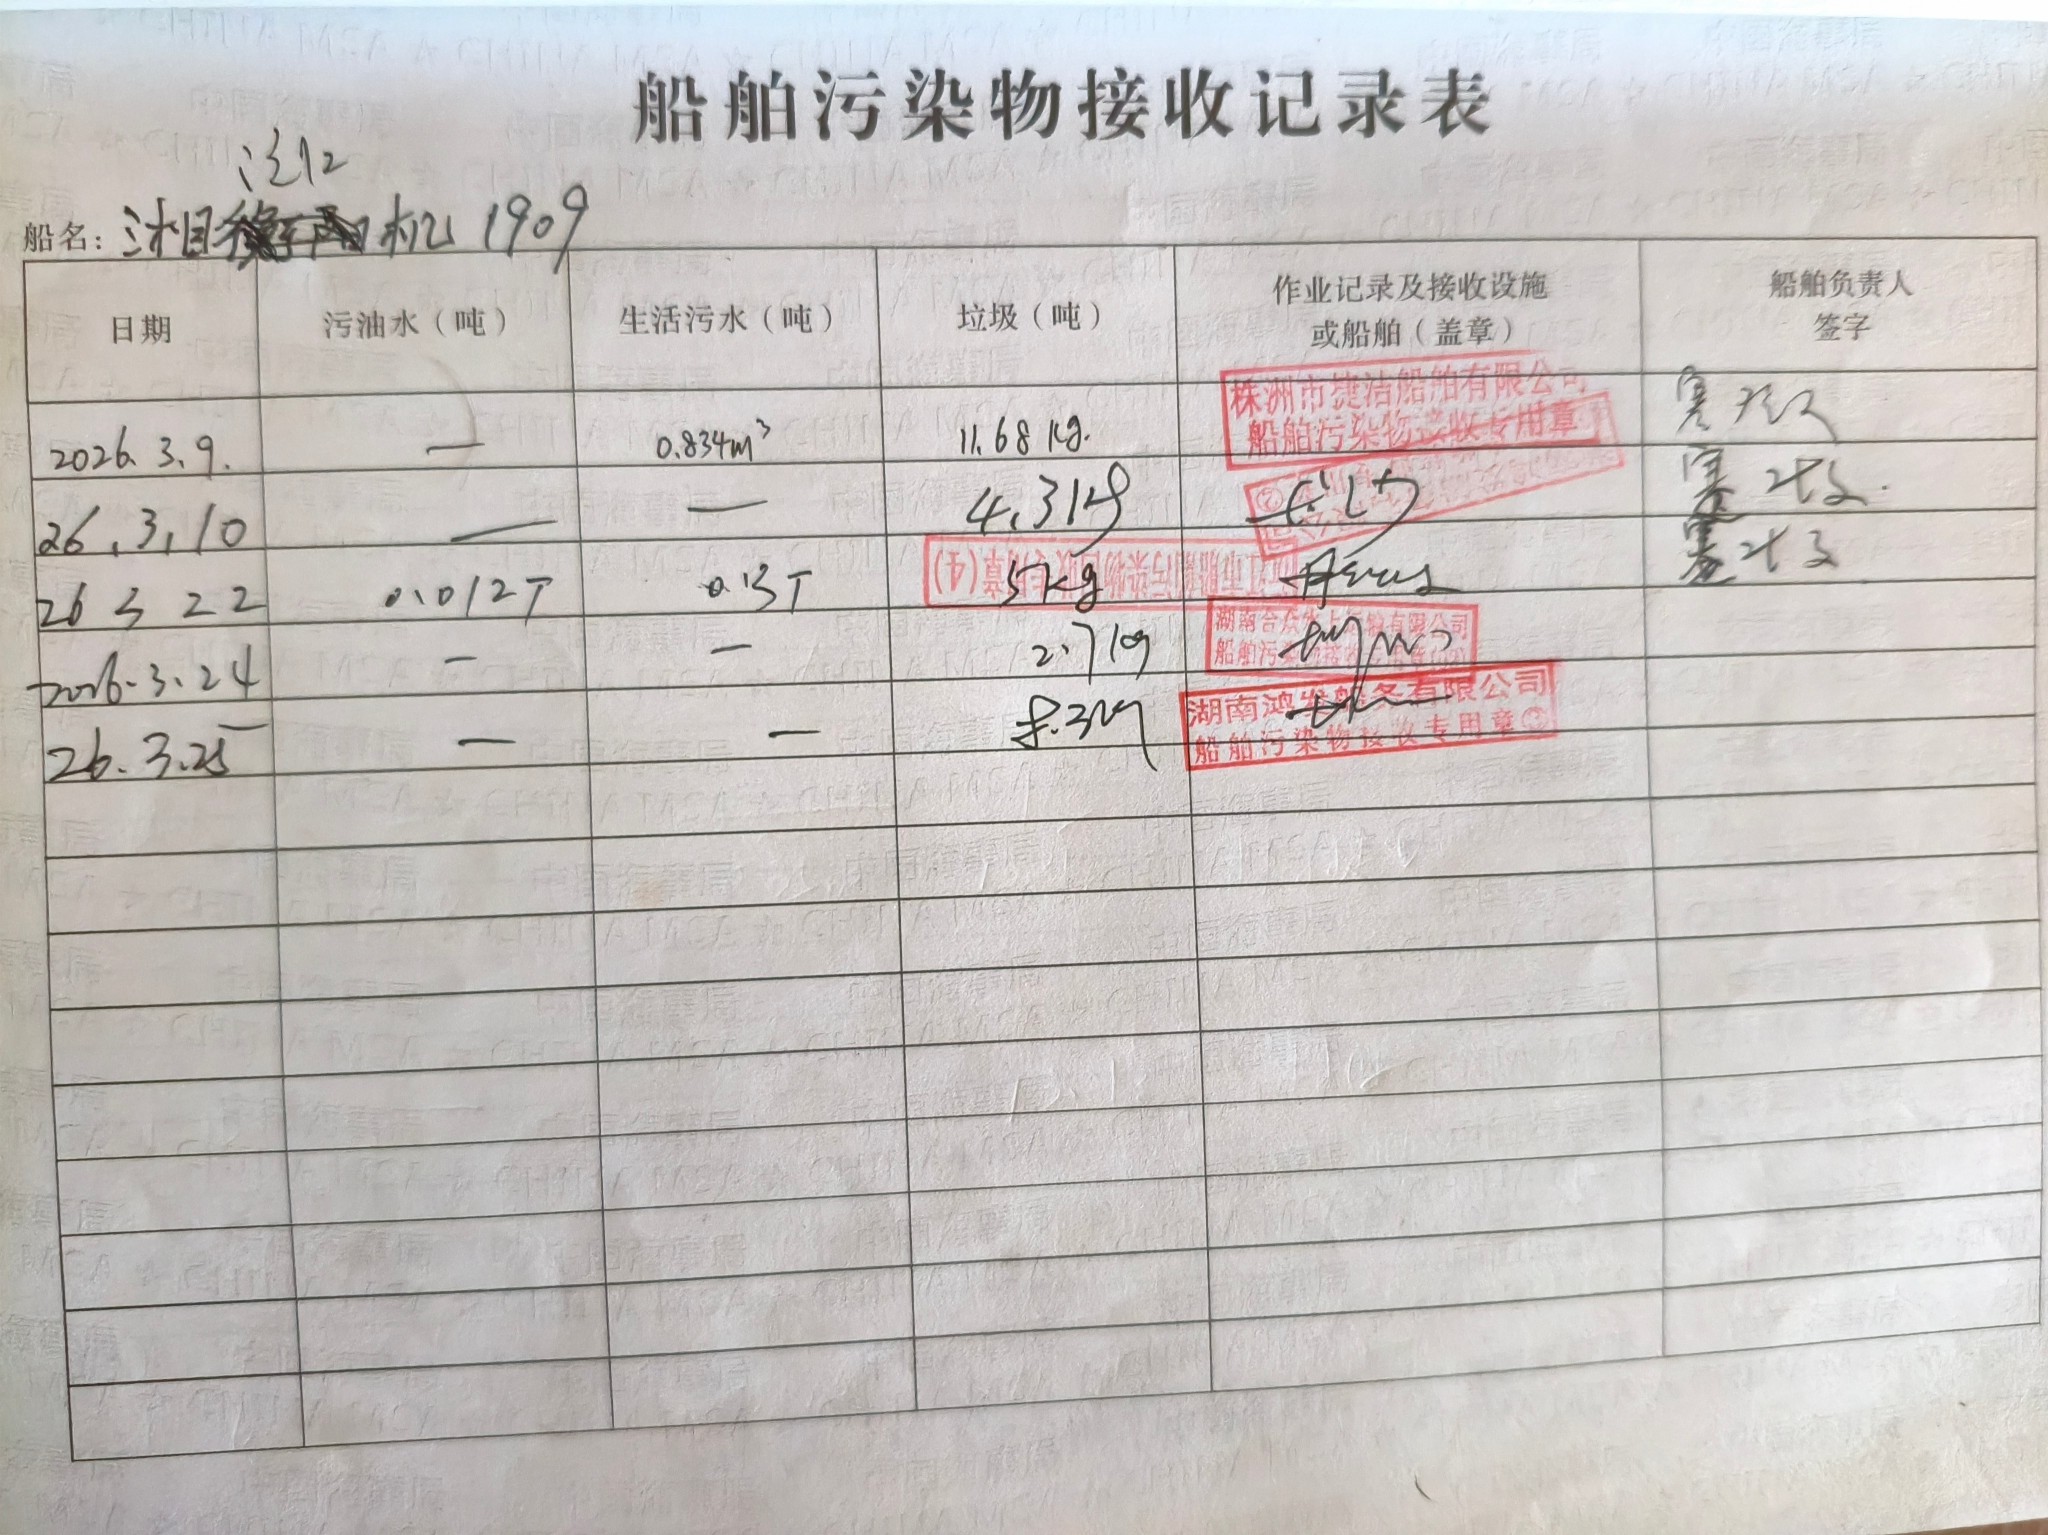 船舶污染物接收记录表
船名：湘沅江机1909
日期 污油水（吨） 生活污水（吨） 垃圾（吨） 作业记录及接收设施或船舶（盖章） 船舶负责人签字
2026.3.9. — 0.834m³ 11.68kg.
株洲市捷洁船舶有限公司
船舶污染物接收专用章
26.3.10 — — 4.3kg
26 3 22 0.012T 0.13T 5kg
2026.3.24 — — 2.7kg
湖南合众水上运输有限公司
船舶污染物接收专用章
26.3.25 — — 8.3kg
湖南鸿发船务有限公司
船舶污染物接收专用章